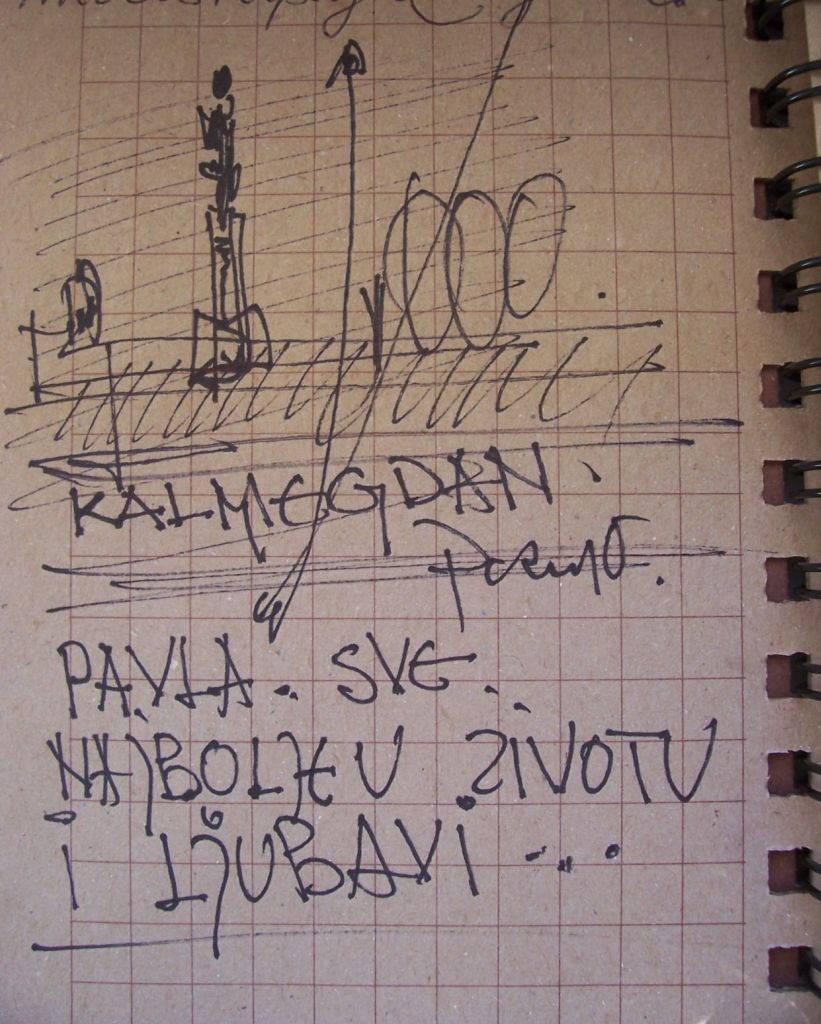 KALMEGDAN.
PAVLA. SVE.
NAJBOLJE U ŽIVOTU
i LJUBAVi ...